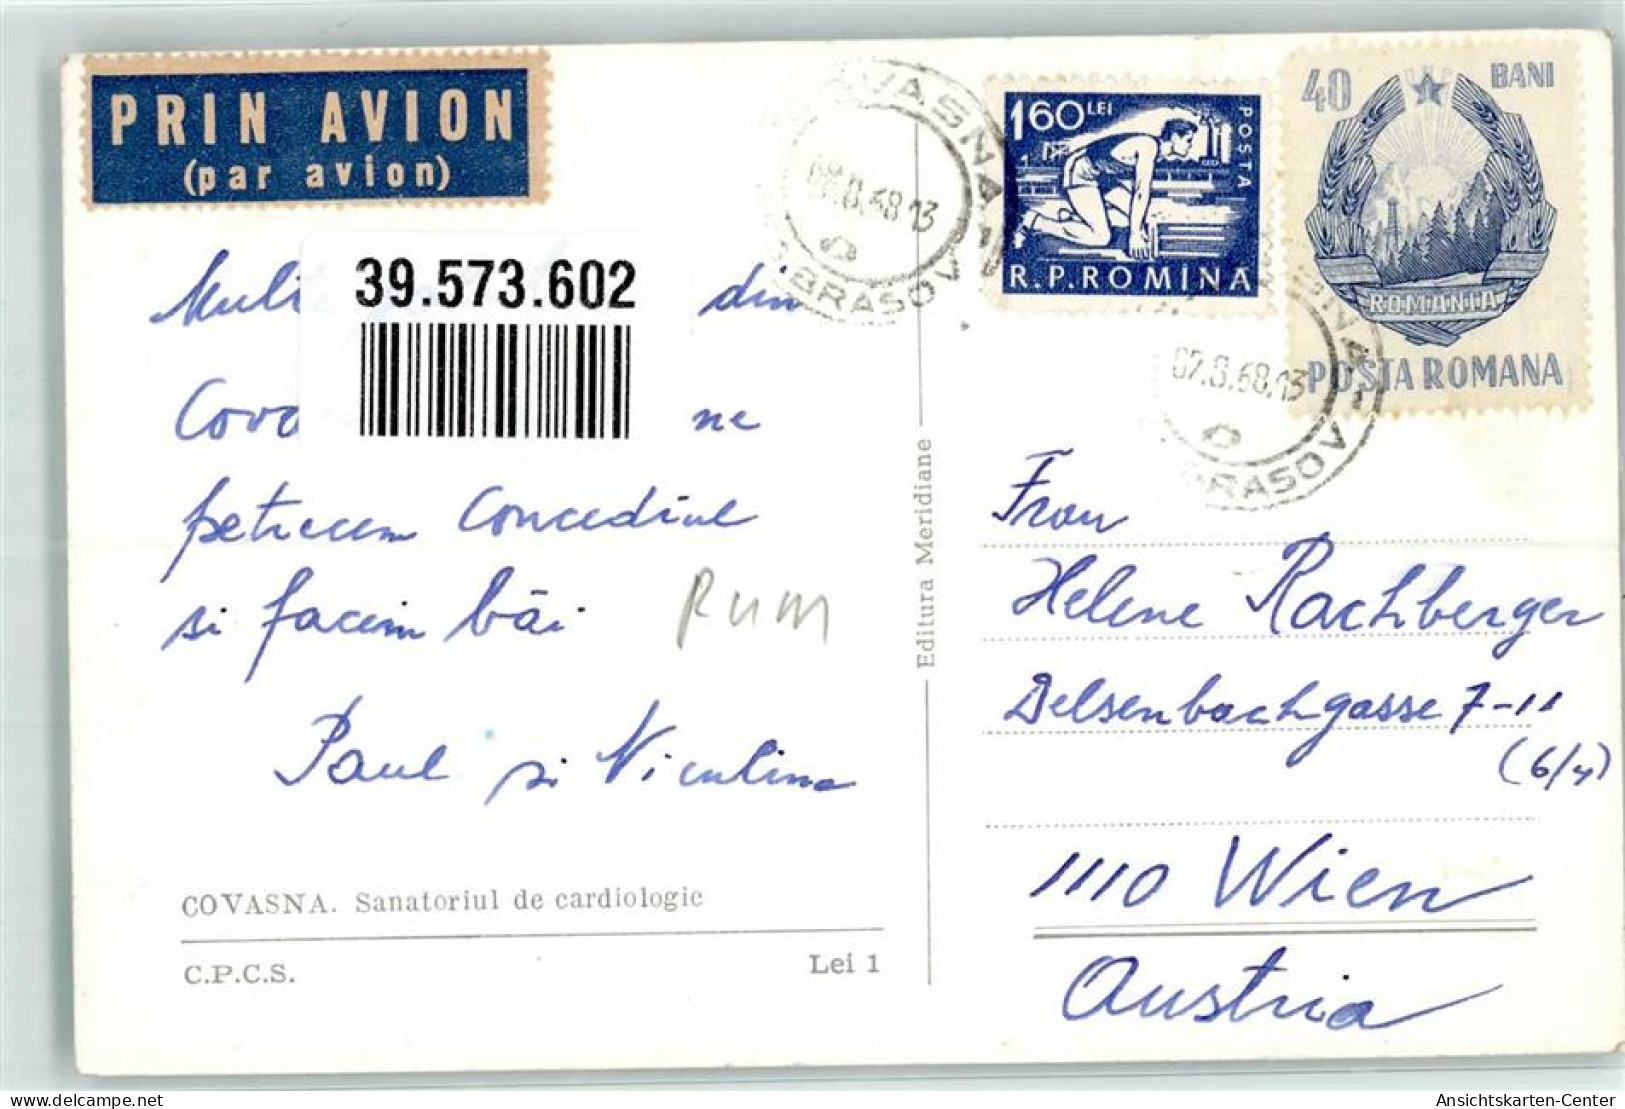 PRIN AVION
(par avion)
39.573.602
din
ne
petrecem Concediul
si facem băi
RUM
Paul si Niculina
COVASNA. Sanatoriul de cardiologie
C.P.C.S.
Lei 1
Editura Meridiane
BRASOV
160 LEI
POSTA
R.P.ROMINA
40 BANI
ROMANIA
POSTA ROMANA
07.8.68.13
BRASOV
Frau
Helene Rachberger
Delsenbachgasse 7-11
(6/4)
1110 Wien
Austria
Ansichtskarten-Center
www.delcampe.net